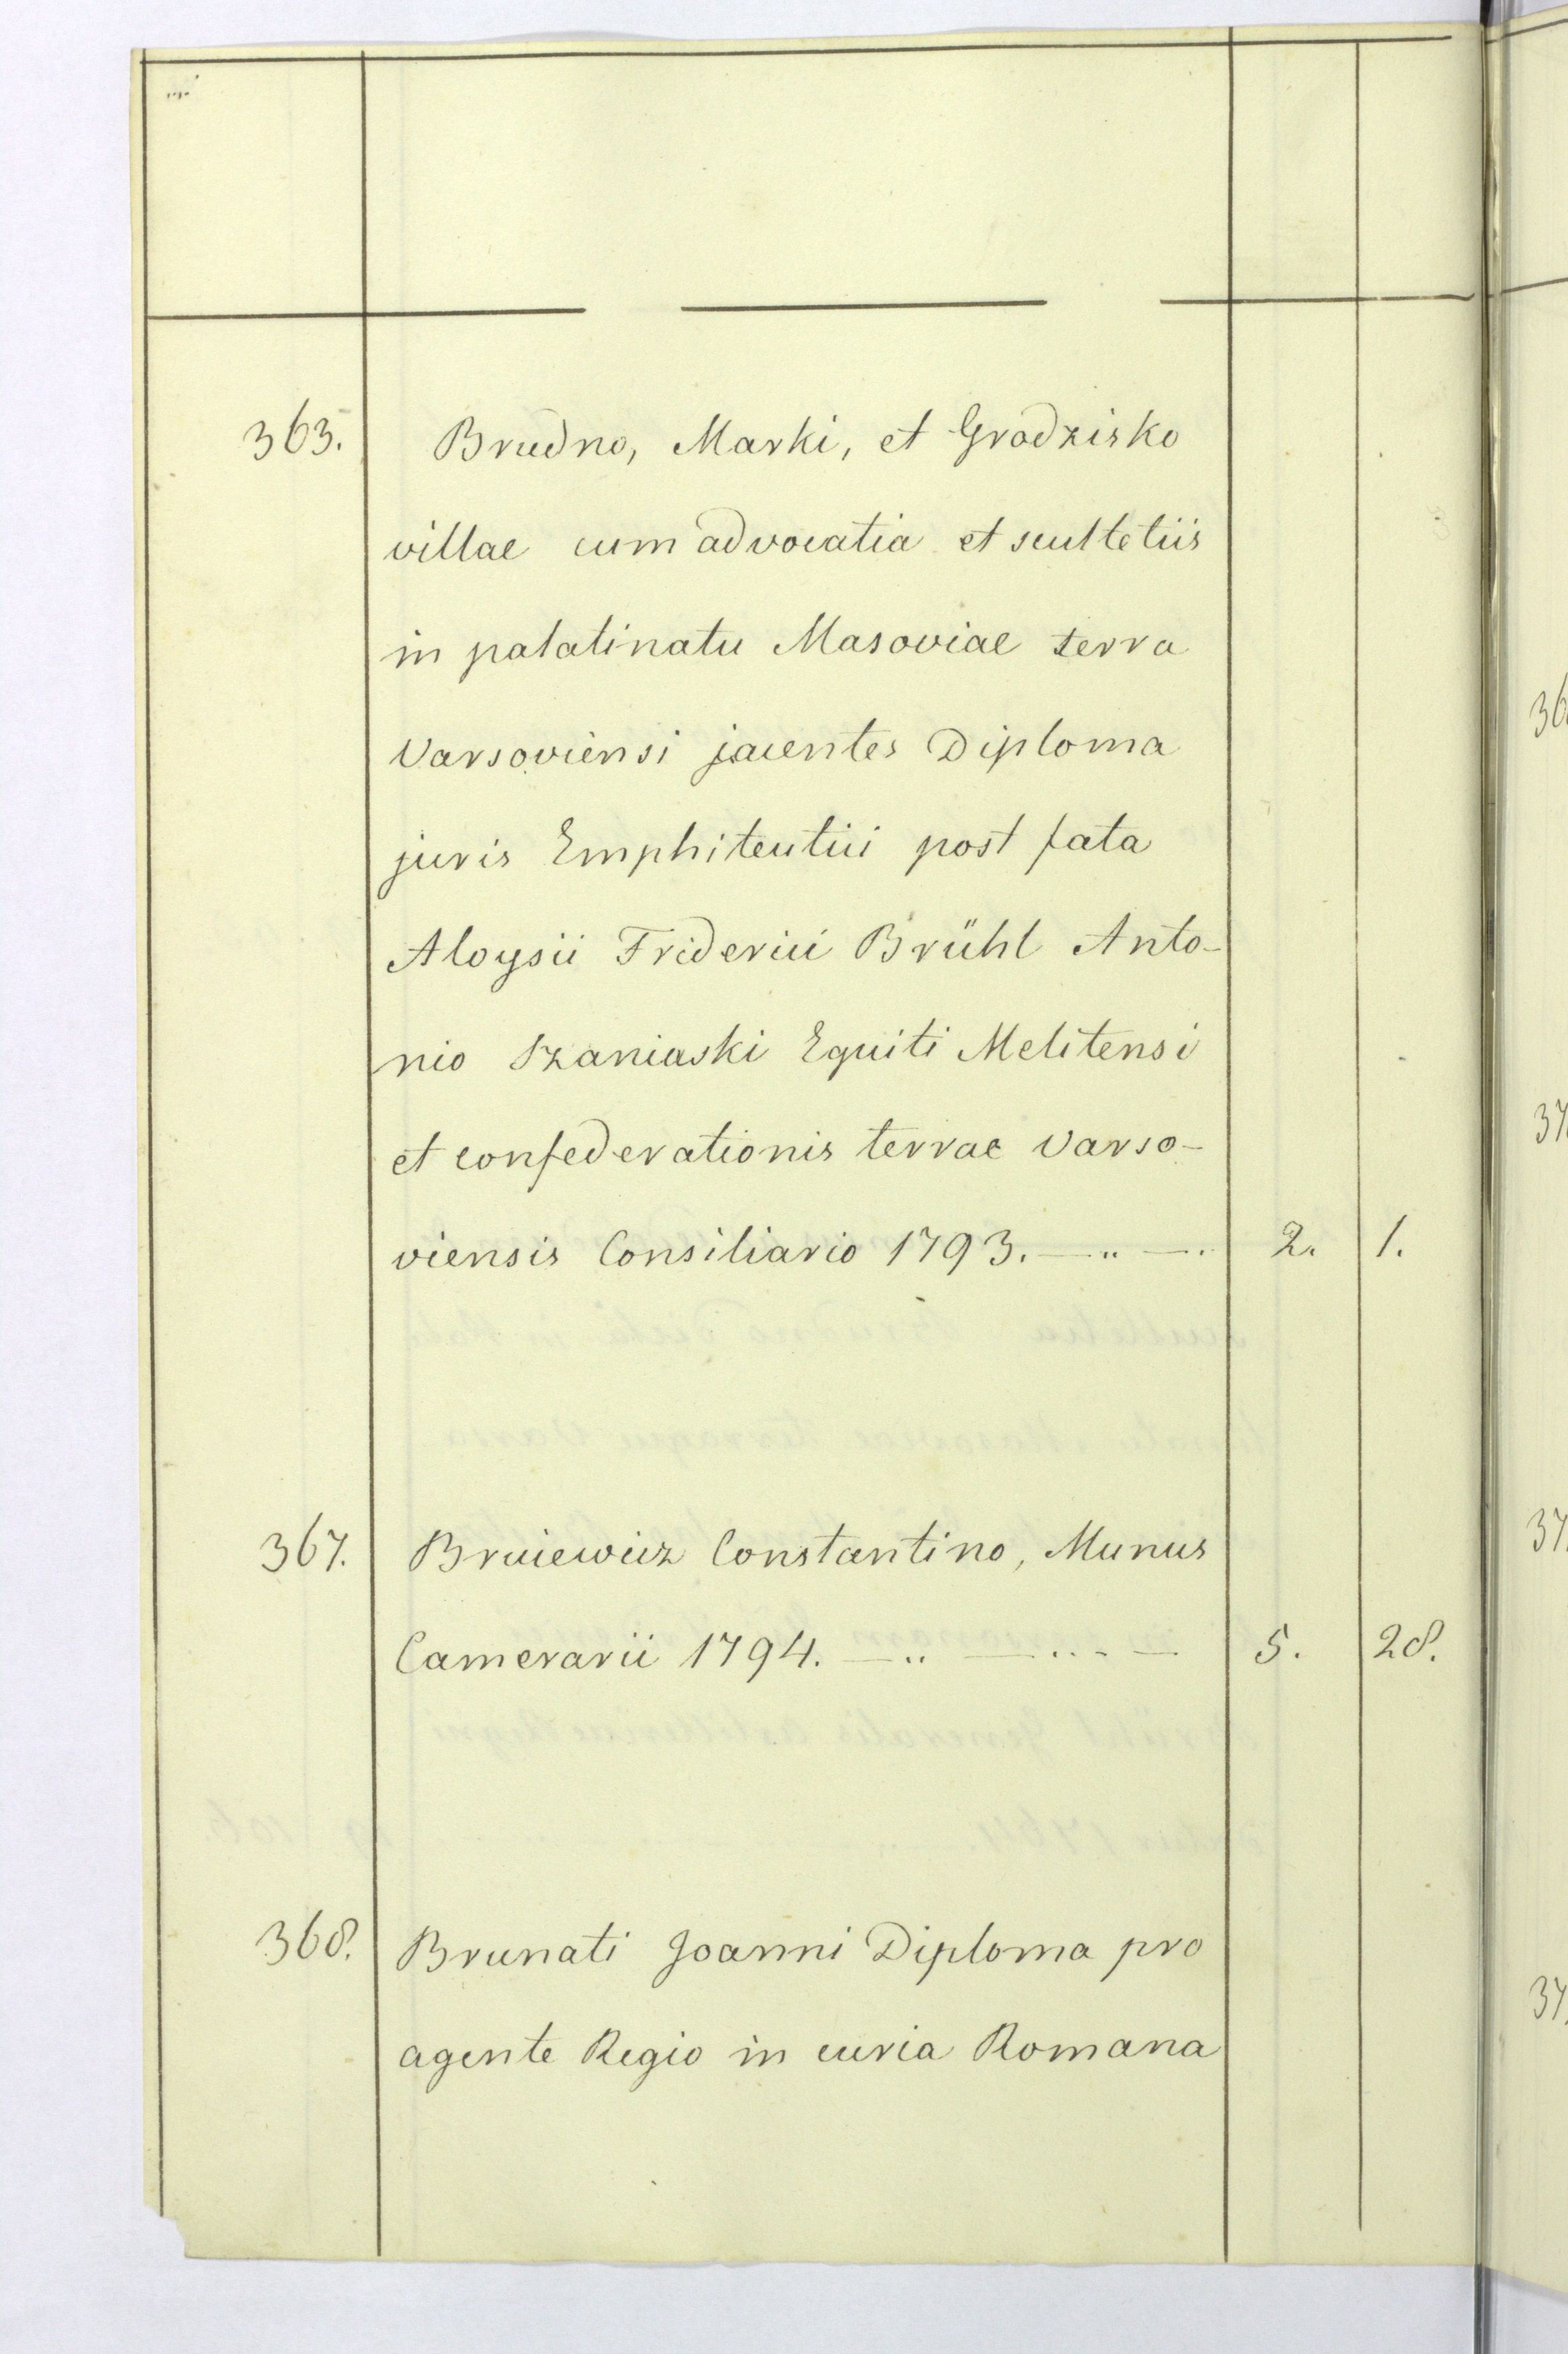 363. Brudno, Marki, et Grodzisko
villae cum advocatia et scultetiis
in palatinatu Masoviae terra
Varsoviensi jacentes Diploma
juris Emphiteutici post fata
Aloysii Friderici Brühl Anto-
nio Szaniaski Equiti Melitensi
et confederationis terrae Varso-
viensis Consiliario 1793. — „ — . 2. 1.
367. Bruiewicz Constantino, Munus
Camerarii 1794. — „ — . . - — 5. 28.
368. Brunati Joanni Diploma pro
agente Regio in curia Romana